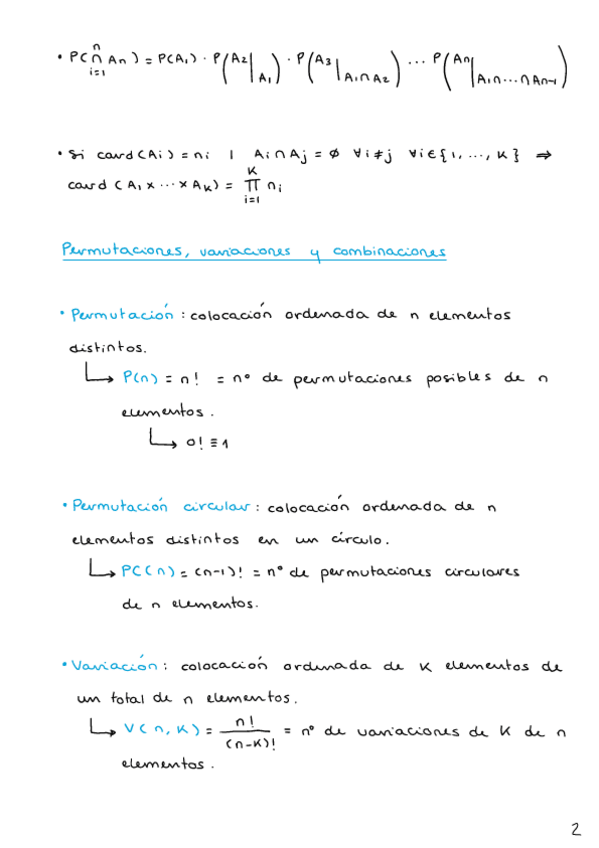 • P(∩ᵢ₌₁ⁿ Aₙ) = P(A₁) · P(A₂|A₁) · P(A₃|A₁∩A₂) ... P(Aₙ|A₁∩...∩Aₙ₋₁)
• Si card(Aᵢ) = nᵢ | Aᵢ∩Aⱼ = ∅ ∀i≠j ∀i∈{1, ..., K} ⇒
card (A₁ x ... x Aₖ) = ∏ᵢ₌₁ᴷ nᵢ
Permutaciones, variaciones y combinaciones
• Permutación: colocación ordenada de n elementos
distintos.
↳ P(n) = n! = nº de permutaciones posibles de n
elementos.
↳ 0! ≡ 1
• Permutación circular: colocación ordenada de n
elementos distintos en un círculo.
↳ PC(n) = (n-1)! = nº de permutaciones circulares
de n elementos.
• Variación: colocación ordenada de K elementos de
un total de n elementos.
↳ V(n, K) = n!/(n-K)! = nº de variaciones de K de n
elementos.
2